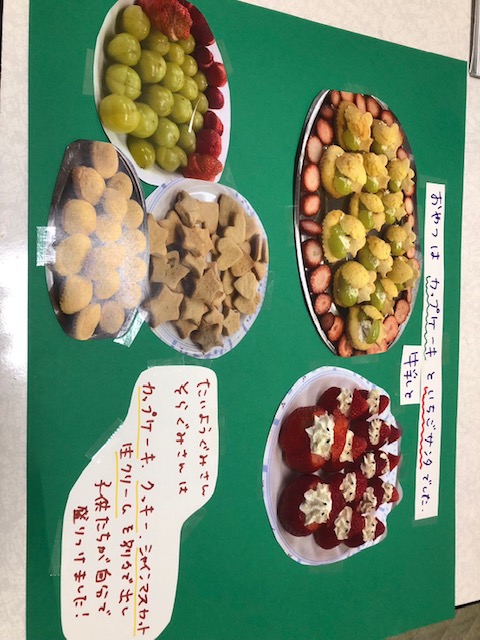 おやつは カップケーキ と いちごサンタ でした。
ぱぱしと
たいようぐみさん
そらぐみさんは
カップケーキ、クッキー、シャインマスカット
生クリームを別々で出し
子供たちが自分で
盛りつけました！